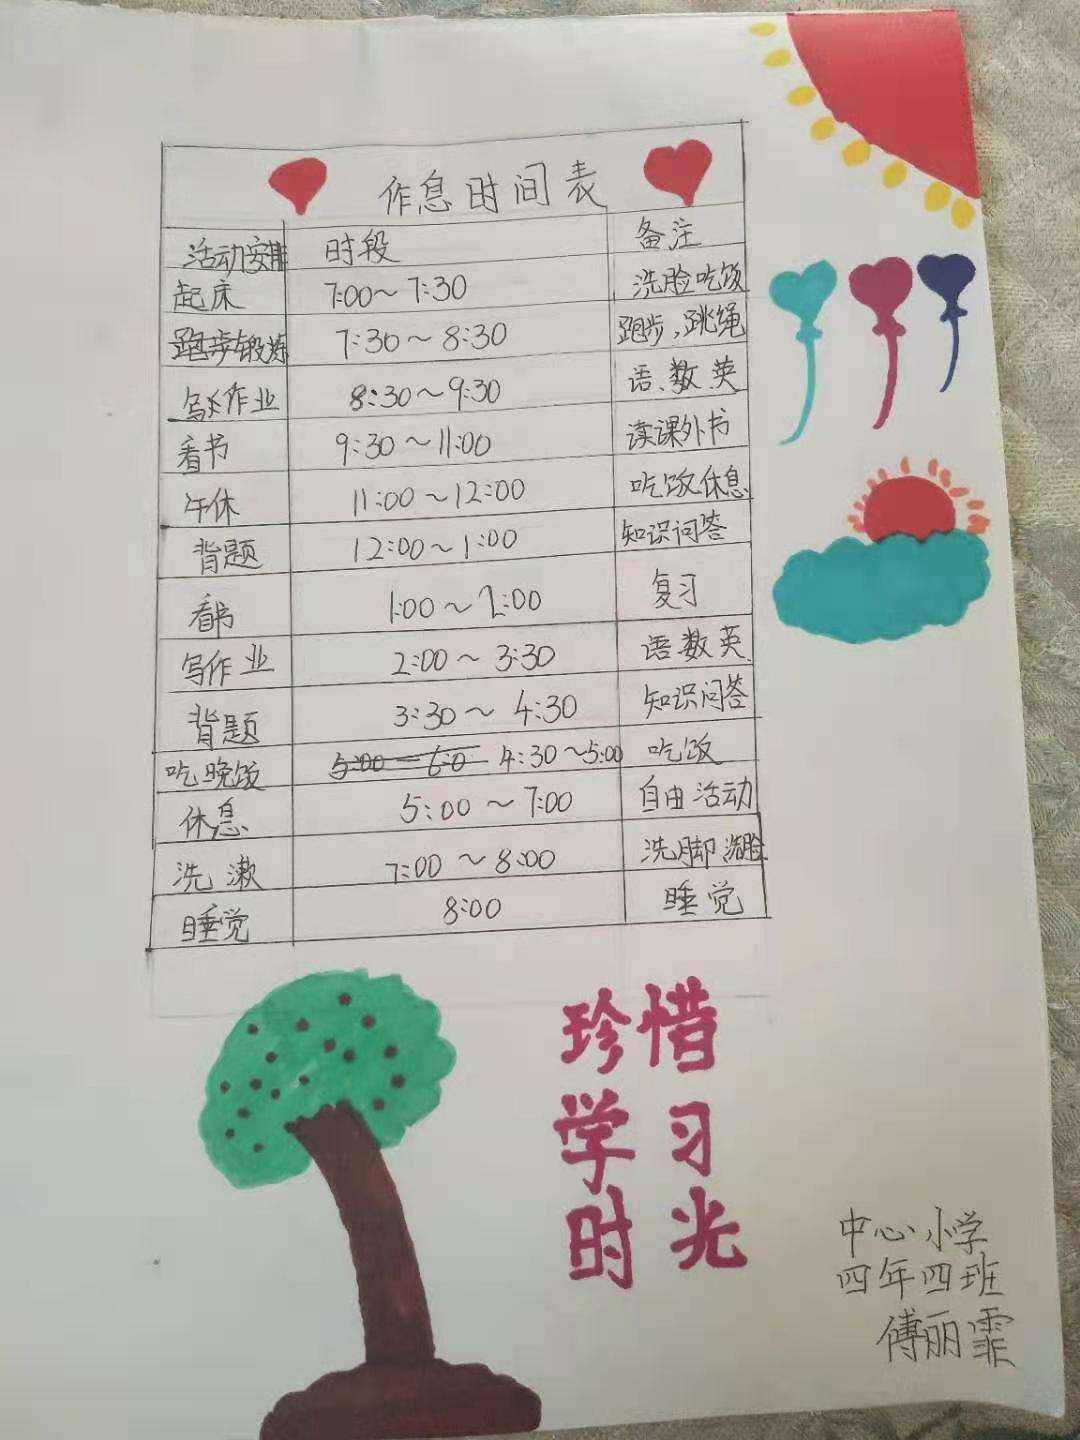 作息时间表
活动安排 时段 备注
起床 7:00～7:30 洗脸吃饭
跑步锻炼 7:30～8:30 跑步,跳绳
写作业 8:30～9:30 语、数、英
看书 9:30～11:00 读课外书
午休 11:00～12:00 吃饭休息
背题 12:00～1:00 知识问答
看书 1:00～2:00 复习
写作业 2:00～3:30 语数英
背题 3:30～4:30 知识问答
吃晚饭 4:30～5:00 吃饭
休息 5:00～7:00 自由活动
洗漱 7:00～8:00 洗脚洗脸
睡觉 8:00 睡觉
珍惜
学习
时光
中心小学
四年四班
傅丽霏